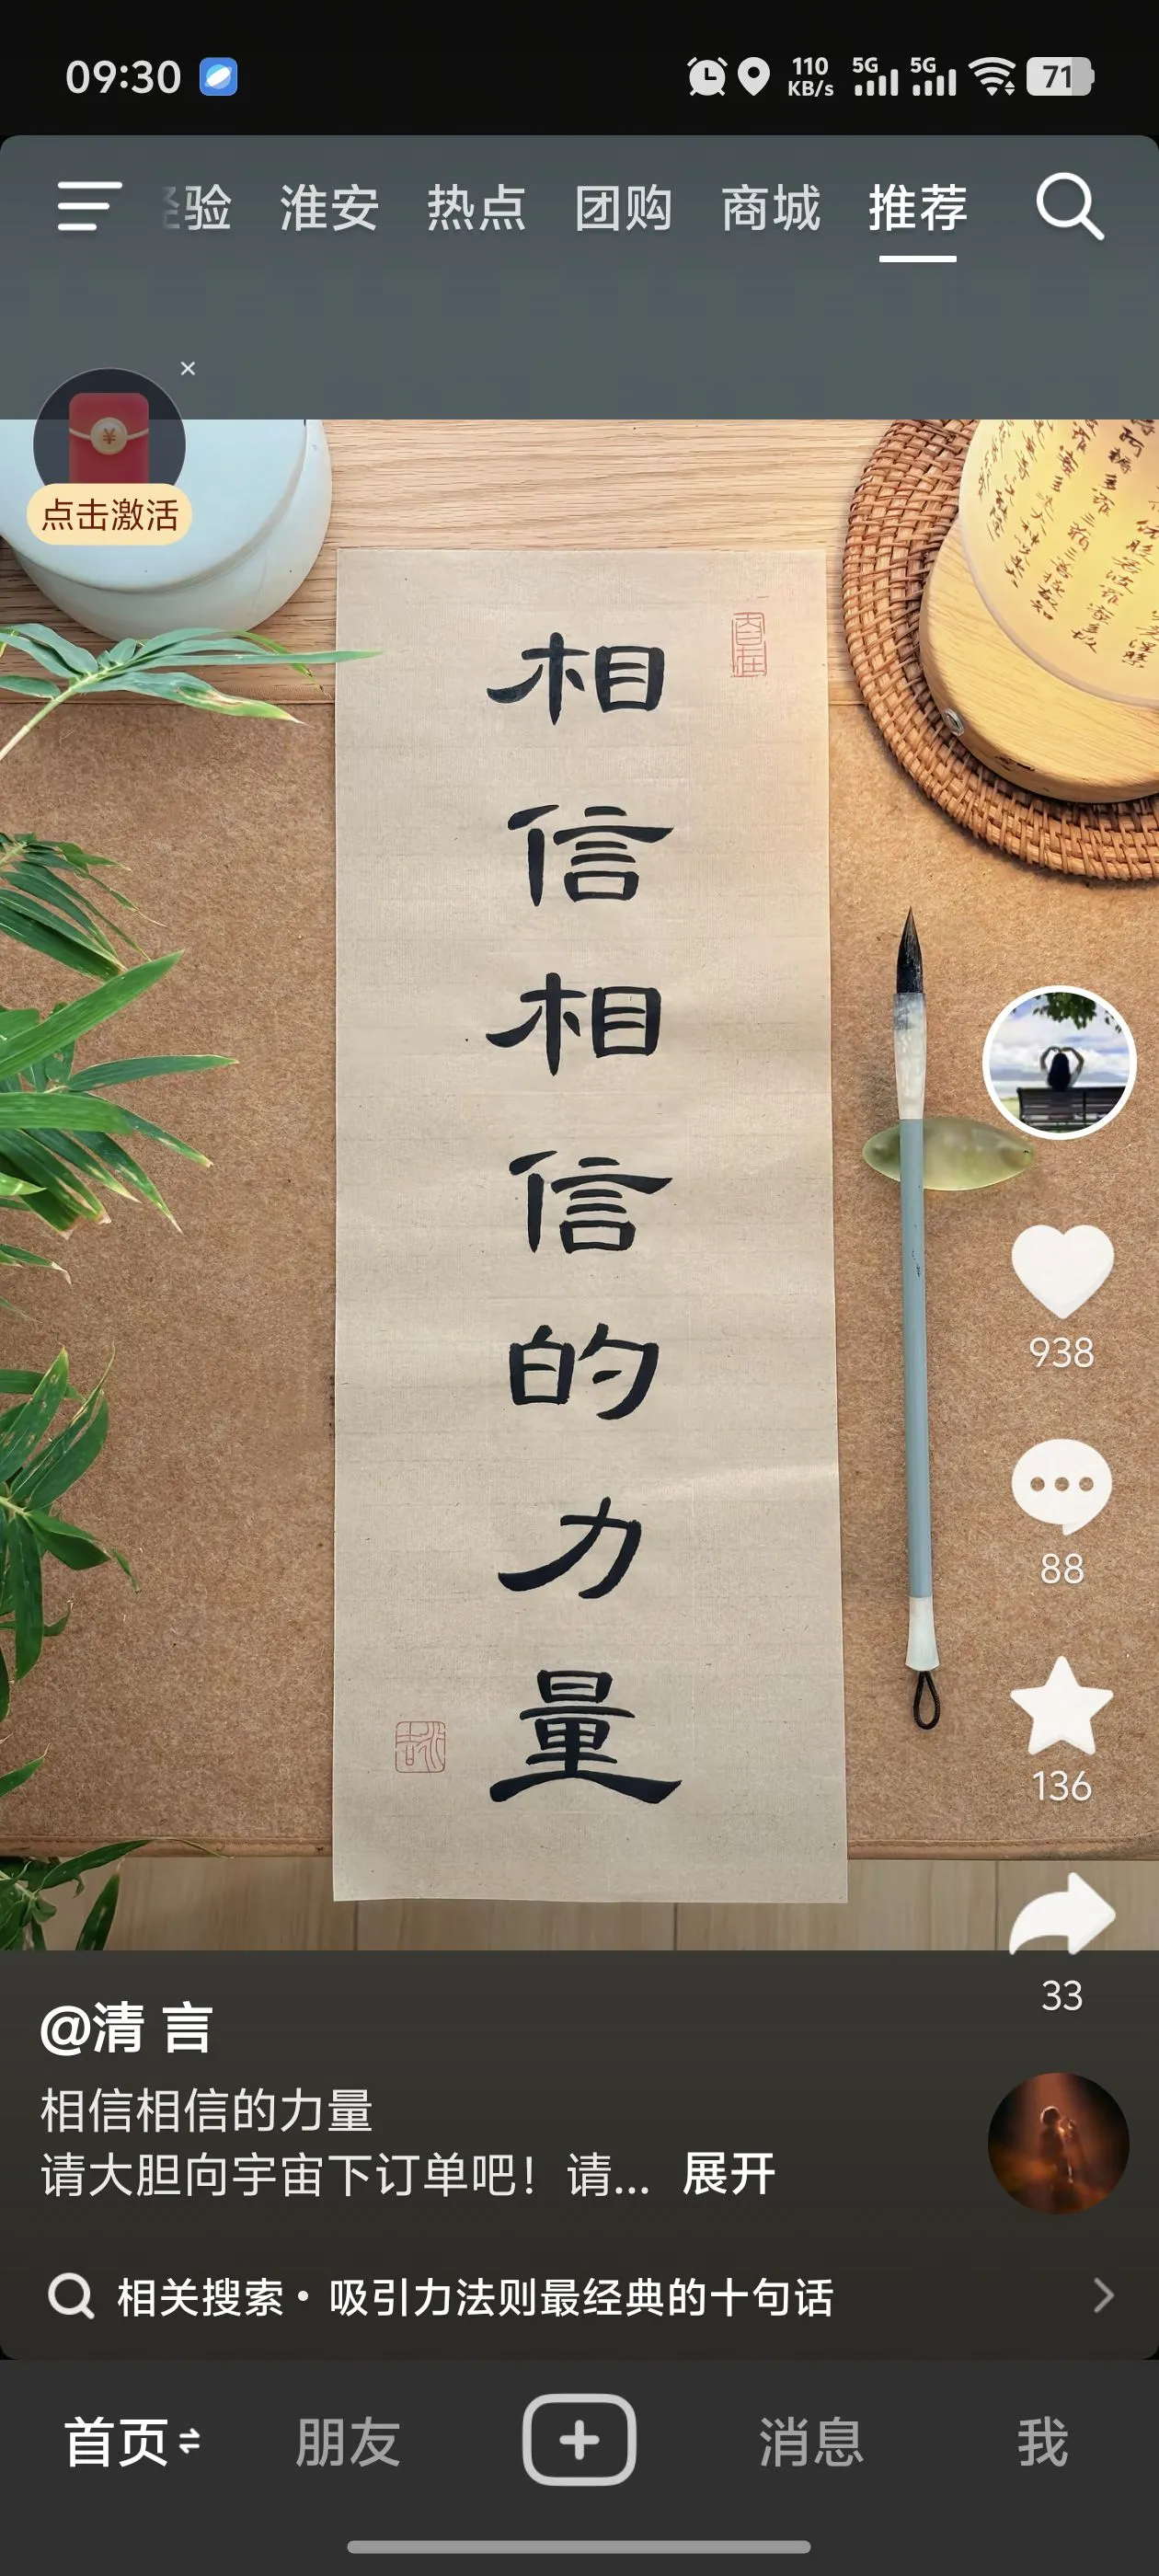 09:30
110
KB/s
5G
5G
71
验
淮安
热点
团购
商城
推荐
点击激活
相
信
相
信
的
力
量
938
88
136
33
@清 言
相信相信的力量
请大胆向宇宙下订单吧！请... 展开
相关搜索 • 吸引力法则最经典的十句话
首页
朋友
消息
我